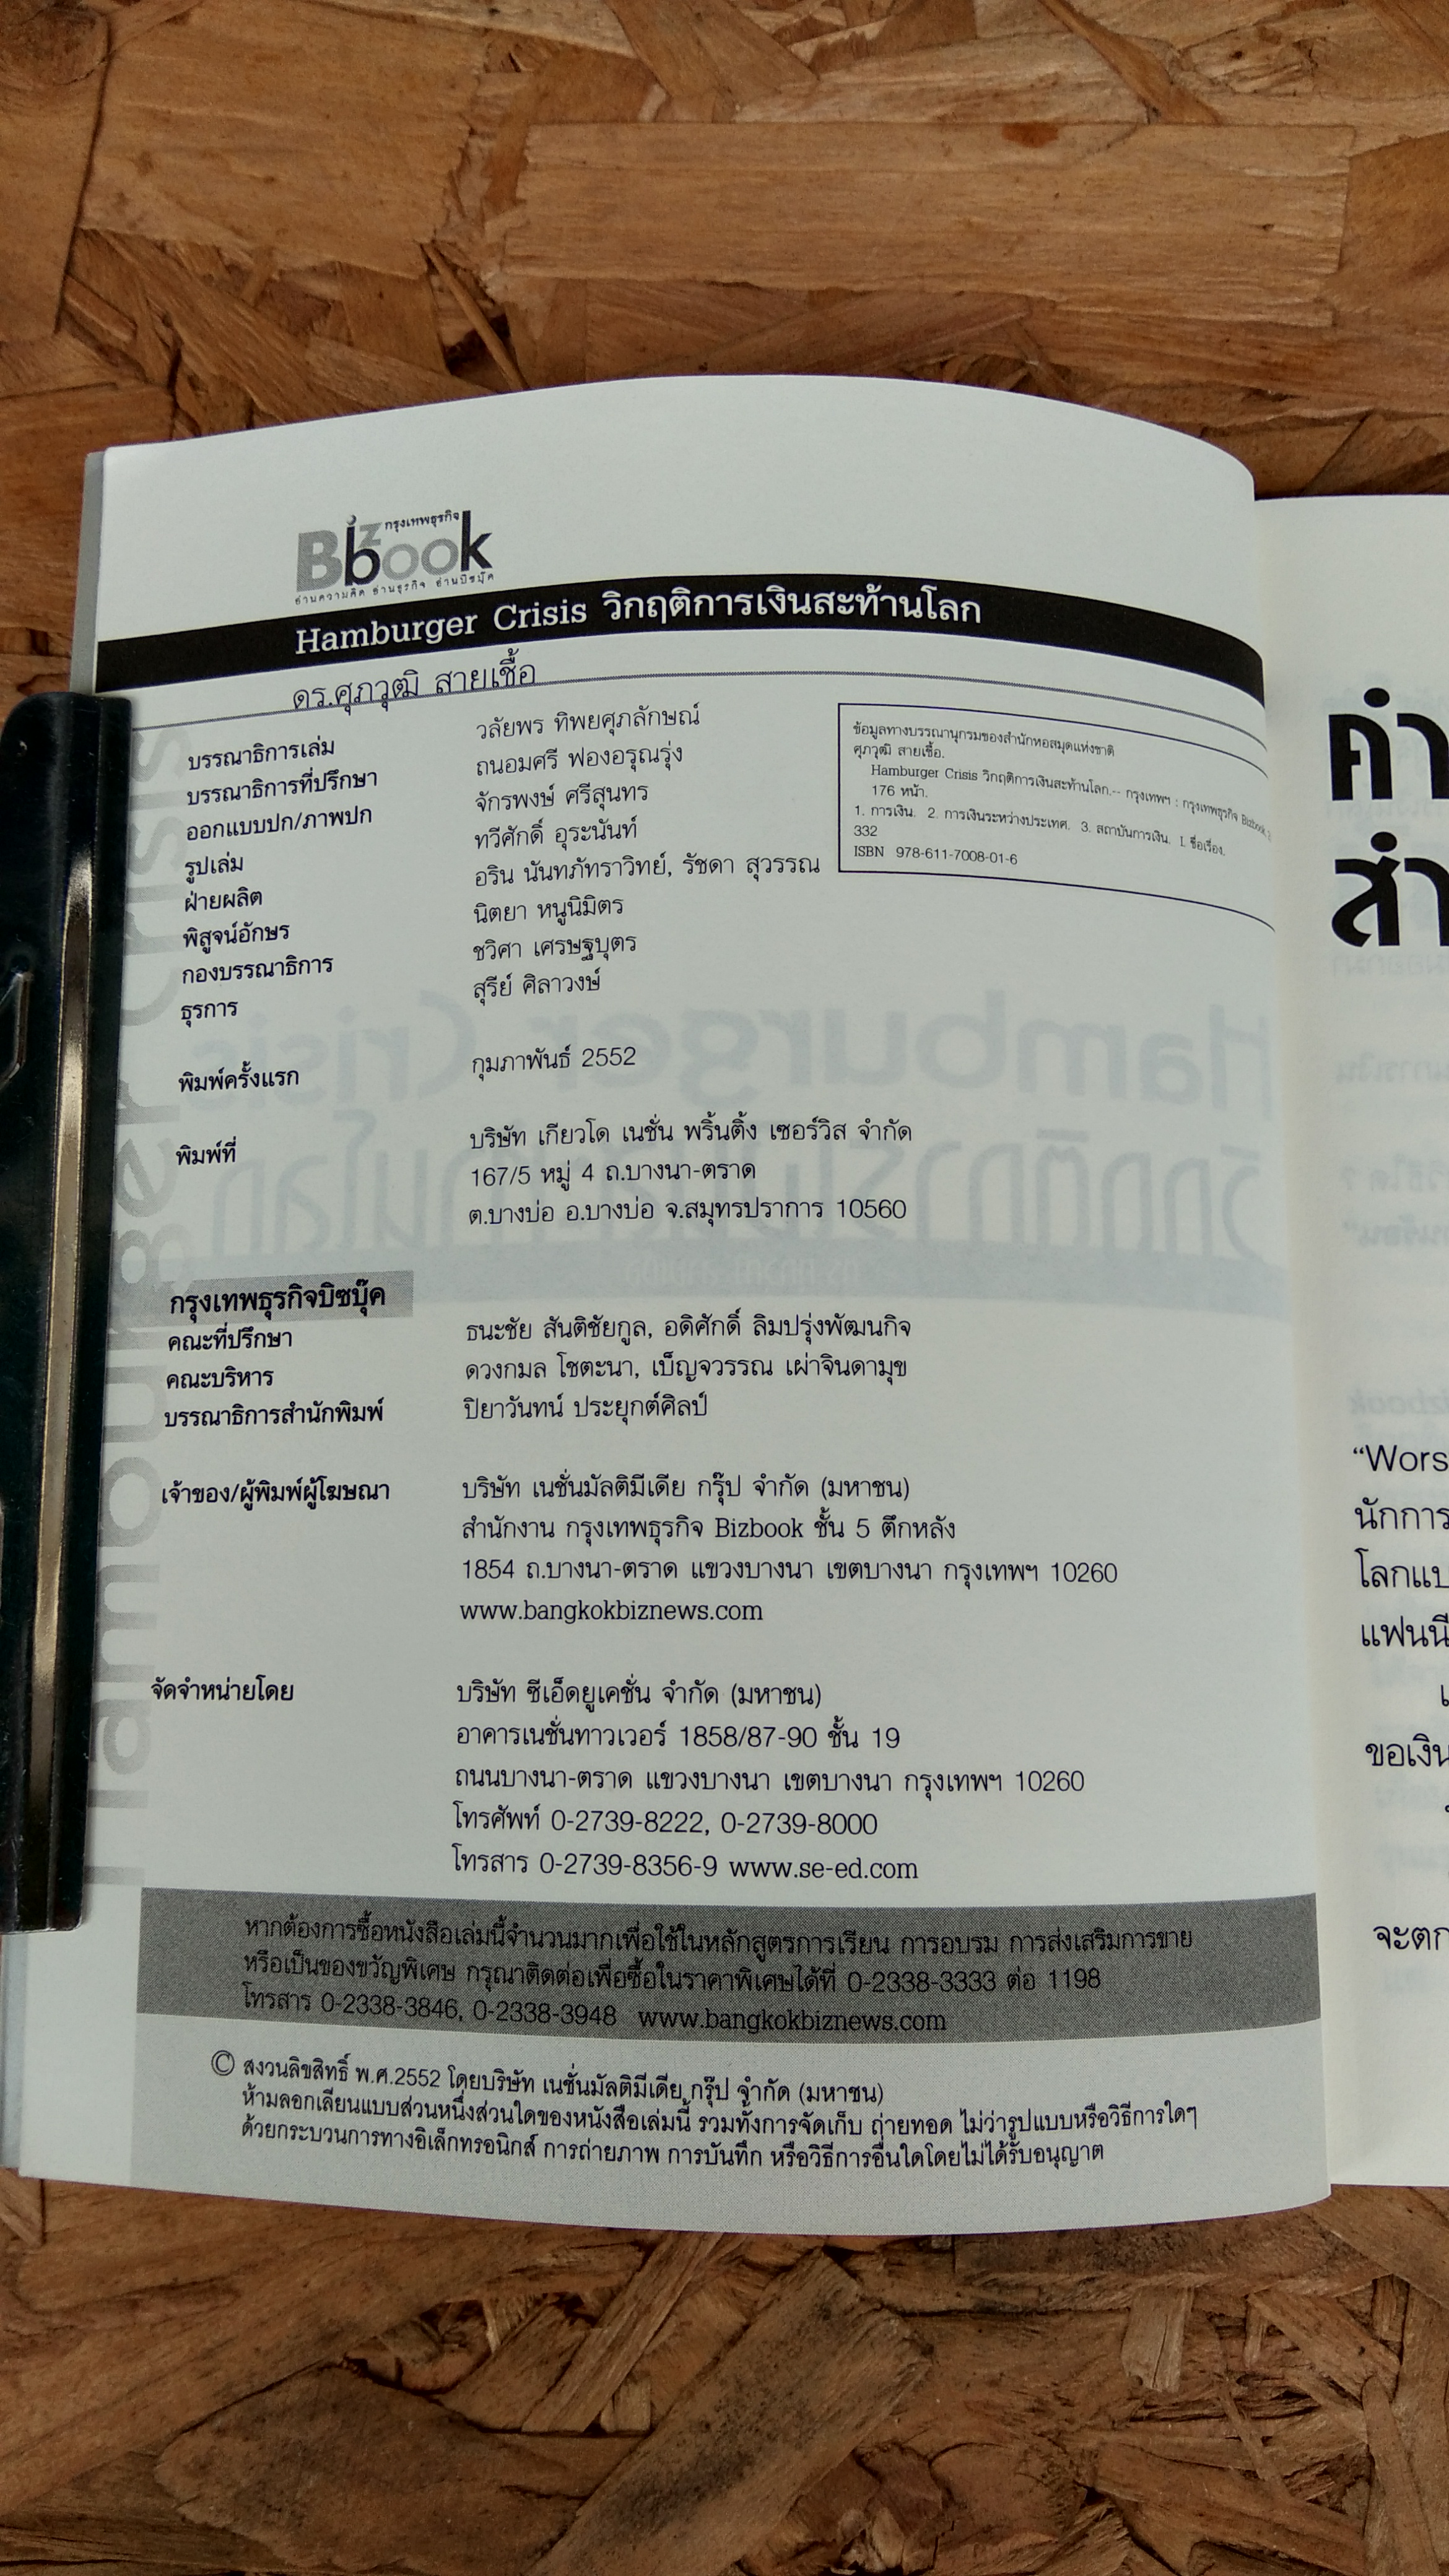 กรุงเทพธุรกิจ
Bizbook
อ่านความคิด อ่านธุรกิจ อ่านบิซบุ๊ค
Hamburger Crisis วิกฤติการเงินสะท้านโลก
ดร.ศุภวุฒิ สายเชื้อ
บรรณาธิการเล่ม วลัยพร ทิพยศุภลักษณ์
บรรณาธิการที่ปรึกษา ถนอมศรี ฟองอรุณรุ่ง
ออกแบบปก/ภาพปก จักรพงษ์ ศรีสุนทร
รูปเล่ม ทวีศักดิ์ อุระนันท์
ฝ่ายผลิต อริน นันทภัทราวิทย์, รัชดา สุวรรณ
พิสูจน์อักษร นิตยา หนูนิมิตร
กองบรรณาธิการ ชวิศา เศรษฐบุตร
ธุรการ สุรีย์ ศิลาวงษ์
ข้อมูลทางบรรณานุกรมของสำนักหอสมุดแห่งชาติ
ศุภวุฒิ สายเชื้อ.
Hamburger Crisis วิกฤติการเงินสะท้านโลก.-- กรุงเทพฯ : กรุงเทพธุรกิจ Bizbook,
176 หน้า.
1. การเงิน. 2. การเงินระหว่างประเทศ. 3. สถาบันการเงิน. I. ชื่อเรื่อง.
332
ISBN 978-611-7008-01-6
พิมพ์ครั้งแรก กุมภาพันธ์ 2552
พิมพ์ที่ บริษัท เกียวโด เนชั่น พริ้นติ้ง เซอร์วิส จำกัด
167/5 หมู่ 4 ถ.บางนา-ตราด
ต.บางบ่อ อ.บางบ่อ จ.สมุทรปราการ 10560
กรุงเทพธุรกิจบิซบุ๊ค
คณะที่ปรึกษา ธนะชัย สันติชัยกูล, อดิศักดิ์ ลิมปรุ่งพัฒนกิจ
คณะบริหาร ดวงกมล โชตะนา, เบ็ญจวรรณ เผ่าจินดามุข
บรรณาธิการสำนักพิมพ์ ปิยาวันทน์ ประยุกต์ศิลป์
เจ้าของ/ผู้พิมพ์ผู้โฆษณา บริษัท เนชั่นมัลติมีเดีย กรุ๊ป จำกัด (มหาชน)
สำนักงาน กรุงเทพธุรกิจ Bizbook ชั้น 5 ตึกหลัง
1854 ถ.บางนา-ตราด แขวงบางนา เขตบางนา กรุงเทพฯ 10260
www.bangkokbiznews.com
จัดจำหน่ายโดย บริษัท ซีเอ็ดยูเคชั่น จำกัด (มหาชน)
อาคารเนชั่นทาวเวอร์ 1858/87-90 ชั้น 19
ถนนบางนา-ตราด แขวงบางนา เขตบางนา กรุงเทพฯ 10260
โทรศัพท์ 0-2739-8222, 0-2739-8000
โทรสาร 0-2739-8356-9 www.se-ed.com
หากต้องการซื้อหนังสือเล่มนี้จำนวนมากเพื่อใช้ในหลักสูตรการเรียน การอบรม การส่งเสริมการขาย
หรือเป็นของขวัญพิเศษ กรุณาติดต่อเพื่อซื้อในราคาพิเศษได้ที่ 0-2338-3333 ต่อ 1198
โทรสาร 0-2338-3846, 0-2338-3948 www.bangkokbiznews.com
© สงวนลิขสิทธิ์ พ.ศ.2552 โดยบริษัท เนชั่นมัลติมีเดีย กรุ๊ป จำกัด (มหาชน)
ห้ามลอกเลียนแบบส่วนหนึ่งส่วนใดของหนังสือเล่มนี้ รวมทั้งการจัดเก็บ ถ่ายทอด ไม่ว่ารูปแบบหรือวิธีการใดๆ
ด้วยกระบวนการทางอิเล็กทรอนิกส์ การถ่ายภาพ การบันทึก หรือวิธีการอื่นใดโดยไม่ได้รับอนุญาต
Hamburger Crisis
คำ
สำ
“Wors
นักการ
โลกแบ
แฟนนี
ขอเงิน
จะตก